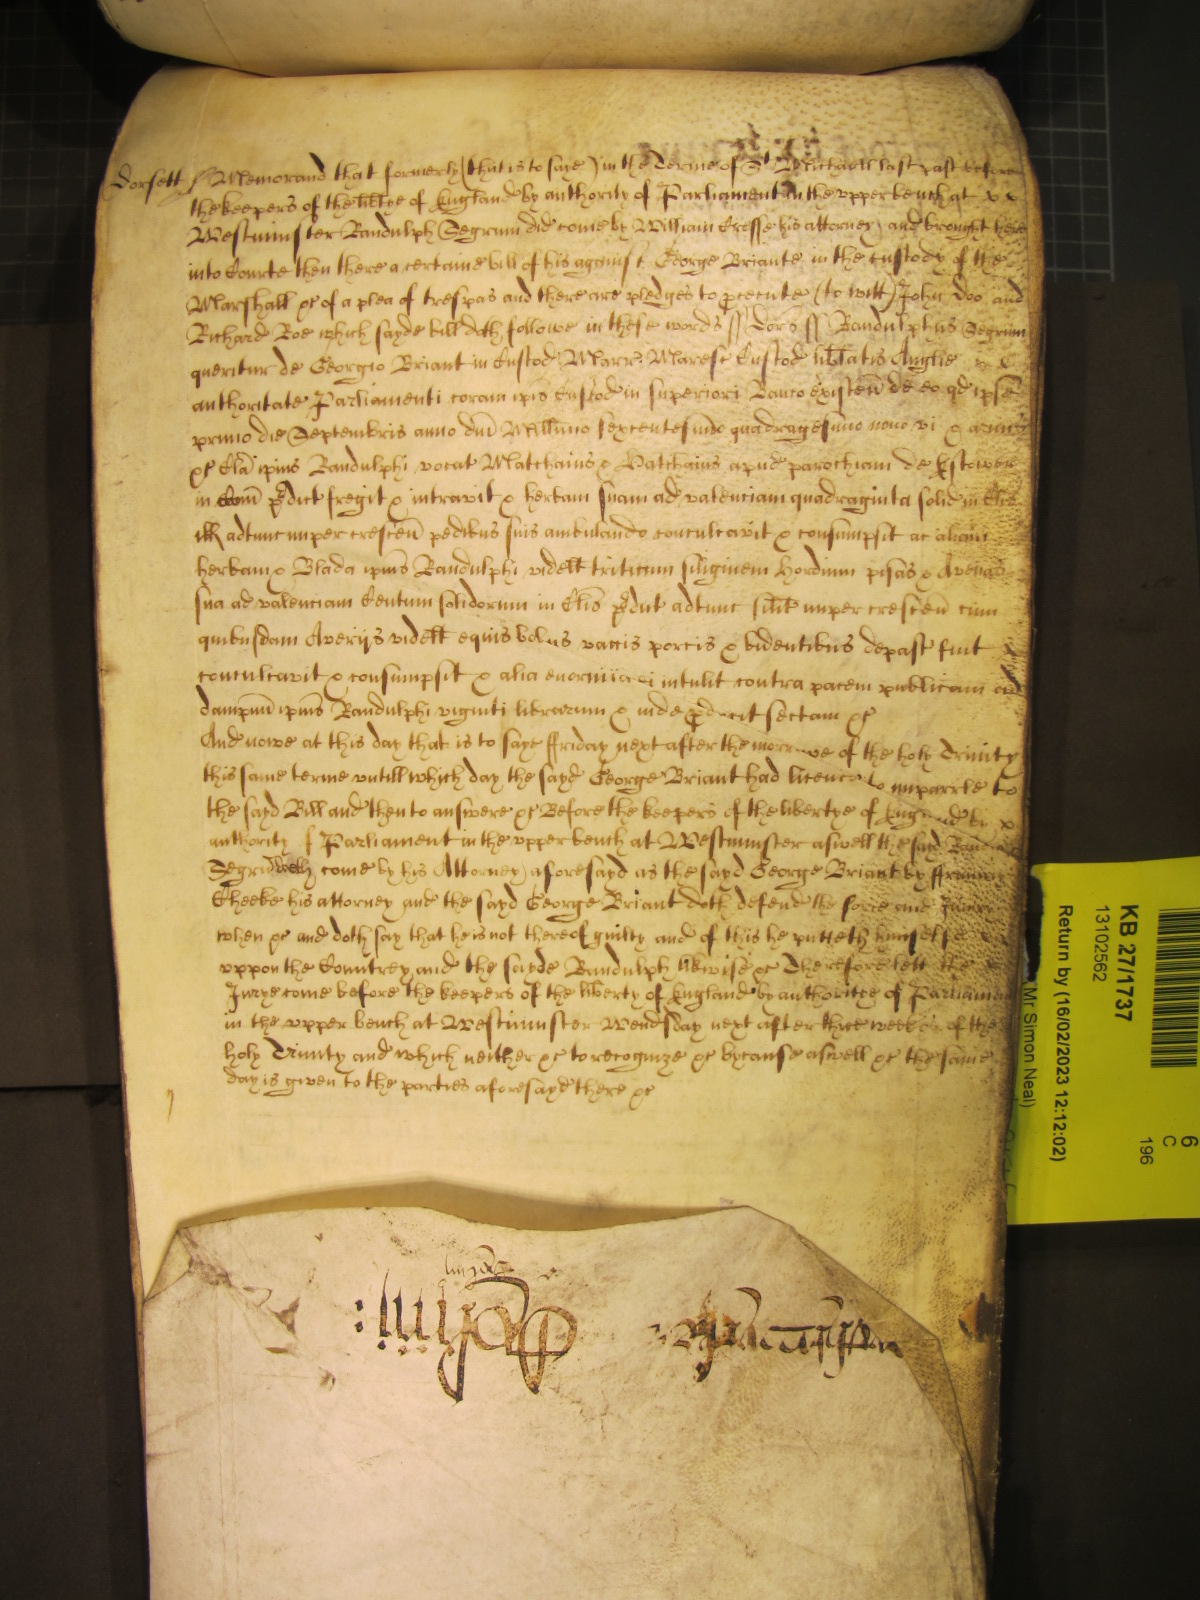 dorsett ss Memorand that formerly (that is to saye) in the Terme of St Michaell last past before
the keepers of the libtye of England by authority of Parliament in the upper bench at
Westminster Randulph Segrim did come by William Crosse his attorney and brought here
into Courte then there a certaine bill of his against George Briante in the custody of the
Marshall &c of a plea of trespas and there are pledges to psecute (to witt) John Doo and
Richard Roe which sayde bill doth followe in these words ss Dors ss Randulphus Segrim
queritur de Georgio Briant in Custod Marr Maresc Custod libtatis Anglie
authoritate Parliamenti coram ipis Custod in superiori Banco existen de eo qd ipse
primo die Septembris anno dni Millimo sexcentesimo quadragesimo nono vi & armis
&c Cla ipius Randulphi vocat Matchains & Hatchains apud parochiam de Estower
in Com pdict fregit & intravit & herbam suam ad valenciam quadraginta solid in Clis
ill adtunc nuper crescen pedibus suis ambulando conculcavit & consumpsit ac aliam
herbam & Blada ipius Randulphi videlt triticum siliginem hordium pisas & Avenas
sua ad valenciam Centum solidorum in Clis pdict adtunc silit nuper crescen cum
quibusdam Averijs videlt equis bobus vaccis porcis & bidentibus depast fuit
conculcavit & consumpsit & alia enormia ei intulit contra pacem publicam ad
dampnu ipius Randulphi viginti librarum & inde pducit sectam &c
And nowe at this day that is to saye ffriday next after the morrowe of the holy Trinity
this same terme untill which day the sayd George Briant had licence to imparle to
the sayd Bill and then to answere &c Before the keepers of the libertye of England by
authority of Parliament in the upper bench at Westminster aswell the said Randulph
Segrim doth come by his Attorney aforesayd as the sayd George Briant by ffrancis
Cheeke his attorney and the sayd George Briant doth defend the force and Iniury
when &c and doth say that he is not thereof guilty and of this he putteth himselfe
uppon the Countrey and the sayde Randulph likwise &c Therefore lett the
Jurye come before the keepers of the liberty of England by authoritye of Parliament
in the upper bench at Westminster Wendsday next after three weekes of the
holy Trinity and which neither &c to recognize &c bycause aswell &c the same
day is given to the parties aforesayd there &c
KB 27/1737
13102562
Return by (16/02/2023 12:12:02)
(Mr Simon Neal)
6
C
196